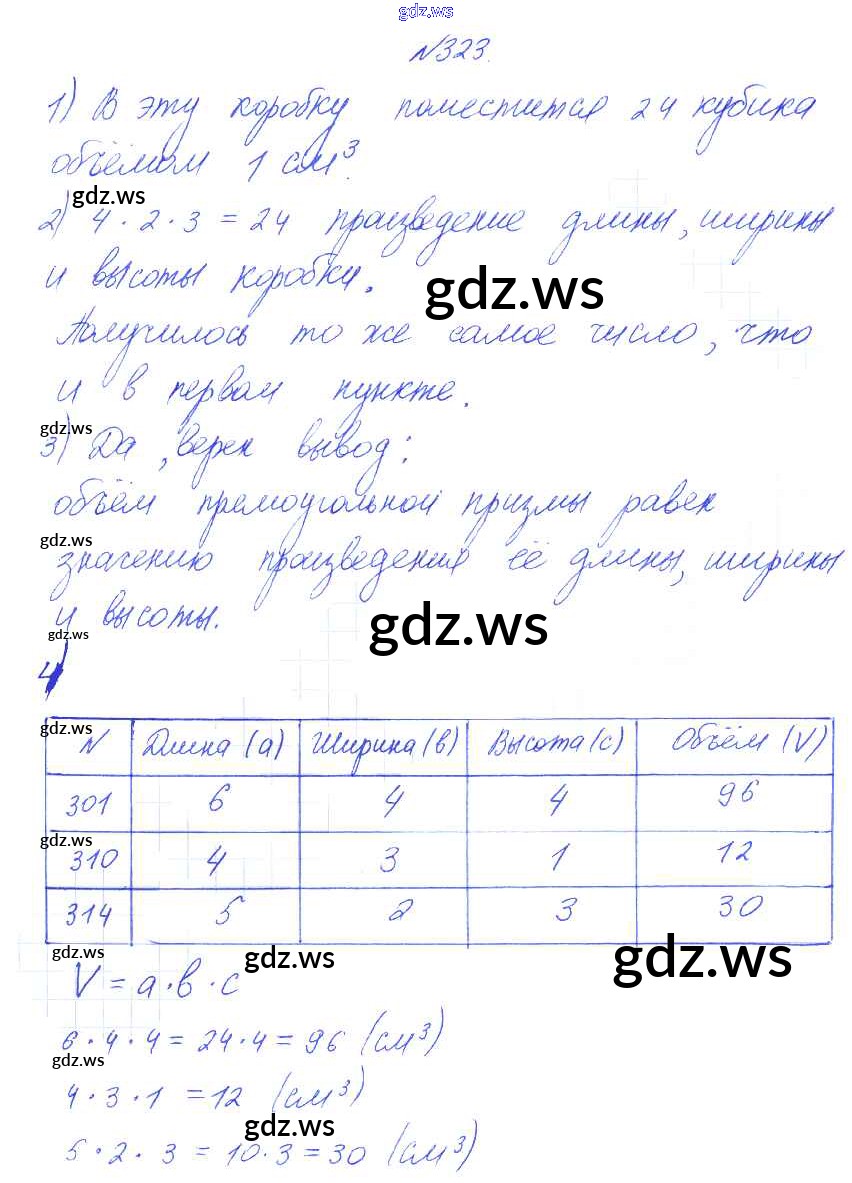 gdz.ws
№323.
1) В эту коробку поместится 24 кубика
объёмом 1 см³.
gdz.ws
2) 4 · 2 · 3 = 24 произведение длины, ширины
и высоты коробки.
gdz.ws
Получилось то же самое число, что
и в первом пункте.
gdz.ws
3) Да, верен вывод:
объём прямоугольной призмы равен
gdz.ws
значению произведения её длины, ширины
и высоты.
gdz.ws
gdz.ws
4)
gdz.ws
N Длина (а) Ширина (в) Высота (с) Объём (V)
301 6 4 4 96
gdz.ws
310 4 3 1 12
314 5 2 3 30
gdz.ws gdz.ws gdz.ws
V = а · в · с
6 · 4 · 4 = 24 · 4 = 96 (см³)
gdz.ws
4 · 3 · 1 = 12 (см³)
gdz.ws
5 · 2 · 3 = 10 · 3 = 30 (см³)